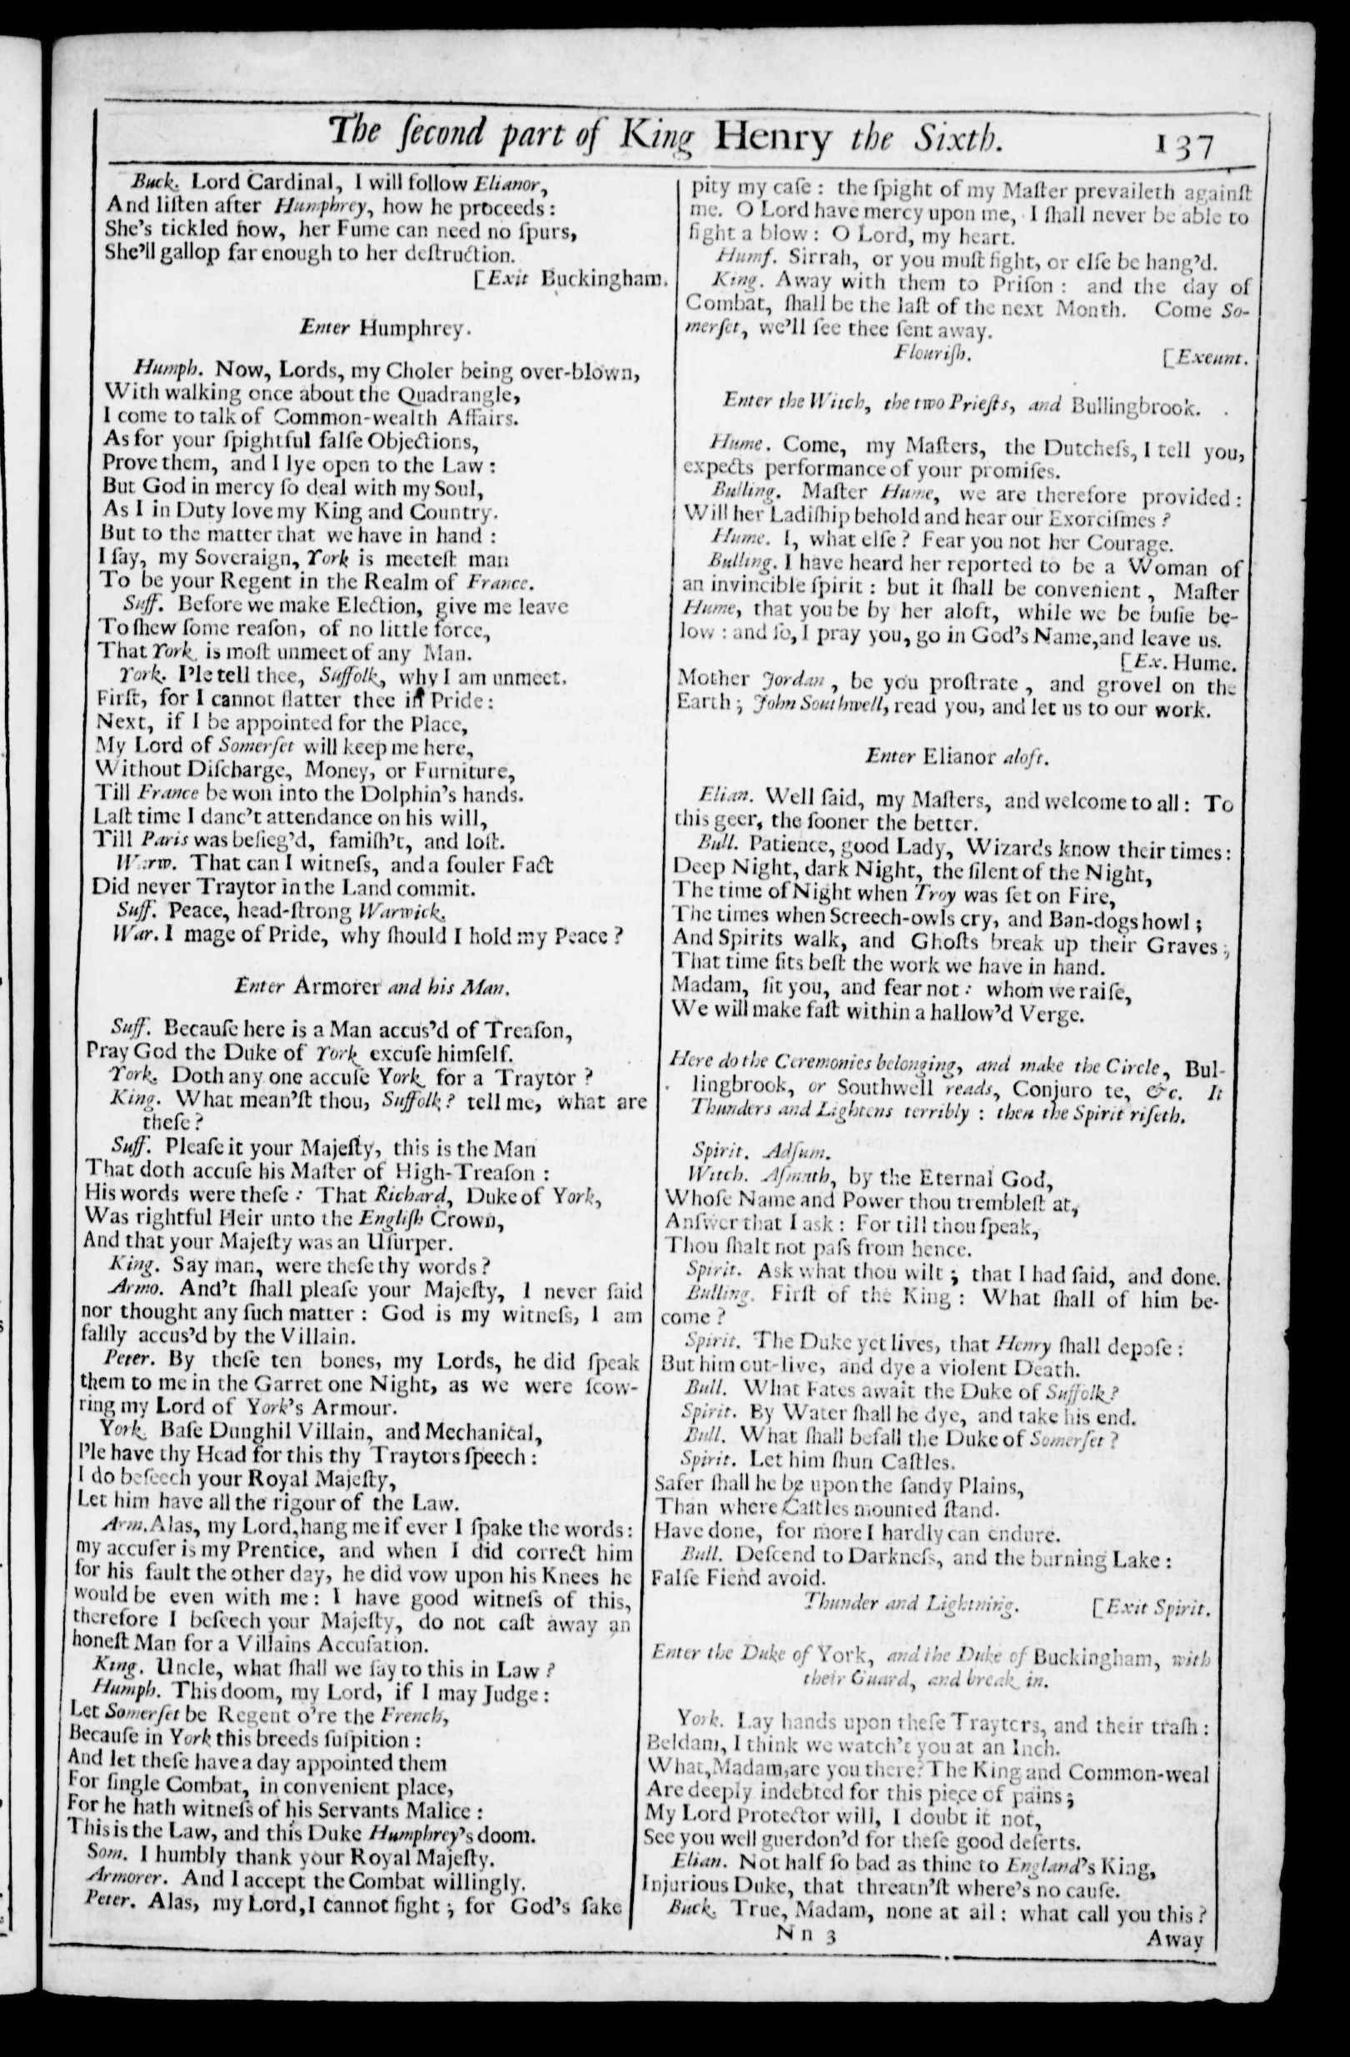 The ſecond part of King Henry the Sixth. 137
Buck. Lord Cardinal, I will follow Elianor,
And liſten after Humphrey, how he proceeds:
She's tickled now, her Fume can need no ſpurs,
She'll gallop far enough to her deſtruction.
[Exit Buckingham.
Enter Humphrey.
Humph. Now, Lords, my Choler being over-blown,
With walking once about the Quadrangle,
I come to talk of Common-wealth Affairs.
As for your ſpightful falſe Objections,
Prove them, and I lye open to the Law:
But God in mercy ſo deal with my Soul,
As I in Duty love my King and Country.
But to the matter that we have in hand:
I ſay, my Soveraign, York is meeteſt man
To be your Regent in the Realm of France.
Suff. Before we make Election, give me leave
To ſhew ſome reaſon, of no little force,
That York is moſt unmeet of any Man.
York. I'le tell thee, Suffolk, why I am unmeet.
Firſt, for I cannot flatter thee in Pride:
Next, if I be appointed for the Place,
My Lord of Somerſet will keep me here,
Without Diſcharge, Money, or Furniture,
Till France be won into the Dolphin's hands.
Laſt time I danc't attendance on his will,
Till Paris was beſieg'd, famiſh't, and loſt.
Warw. That can I witneſs, and a fouler Fact
Did never Traytor in the Land commit.
Suff. Peace, head-ſtrong Warwick.
War. I mage of Pride, why ſhould I hold my Peace?
Enter Armorer and his Man.
Suff. Becauſe here is a Man accus'd of Treaſon,
Pray God the Duke of York excuſe himſelf.
York. Doth any one accuſe York for a Traytor?
King. What mean'ſt thou, Suffolk? tell me, what are
theſe?
Suff. Pleaſe it your Majeſty, this is the Man
That doth accuſe his Maſter of High-Treaſon:
His words were theſe: That Richard, Duke of York,
Was rightful Heir unto the Engliſh Crown,
And that your Majeſty was an Uſurper.
King. Say man, were theſe thy words?
Armo. And't ſhall pleaſe your Majeſty, I never ſaid
nor thought any ſuch matter: God is my witneſs, I am
falſly accus'd by the Villain.
Peter. By theſe ten bones, my Lords, he did ſpeak
them to me in the Garret one Night, as we were ſcow-
ring my Lord of York's Armour.
York. Baſe Dunghil Villain, and Mechanical,
I'le have thy Head for this thy Traytors ſpeech:
I do beſeech your Royal Majeſty,
Let him have all the rigour of the Law.
Arm. Alas, my Lord, hang me if ever I ſpake the words:
my accuſer is my Prentice, and when I did correct him
for his fault the other day, he did vow upon his Knees he
would be even with me: I have good witneſs of this,
therefore I beſeech your Majeſty, do not caſt away an
honeſt Man for a Villains Accuſation.
King. Uncle, what ſhall we ſay to this in Law?
Humph. This doom, my Lord, if I may Judge:
Let Somerſet be Regent o're the French,
Becauſe in York this breeds ſuſpition:
And let theſe have a day appointed them
For ſingle Combat, in convenient place,
For he hath witneſs of his Servants Malice:
This is the Law, and this Duke Humphrey's doom.
Som. I humbly thank your Royal Majeſty.
Armorer. And I accept the Combat willingly.
Peter. Alas, my Lord, I cannot fight; for God's ſake
pity my caſe: the ſpight of my Maſter prevaileth againſt
me. O Lord have mercy upon me, I ſhall never be able to
fight a blow: O Lord, my heart.
Humf. Sirrah, or you muſt fight, or elſe be hang'd.
King. Away with them to Priſon: and the day of
Combat, ſhall be the laſt of the next Month. Come So-
merſet, we'll ſee thee ſent away.
Flouriſh. [Exeunt.
Enter the Witch, the two Prieſts, and Bullingbrook.
Hume. Come, my Maſters, the Dutcheſs, I tell you,
expects performance of your promiſes.
Bulling. Maſter Hume, we are therefore provided:
Will her Ladiſhip behold and hear our Exorciſmes?
Hume. I, what elſe? Fear you not her Courage.
Bulling. I have heard her reported to be a Woman of
an invincible ſpirit: but it ſhall be convenient, Maſter
Hume, that you be by her aloft, while we be buſie be-
low: and ſo, I pray you, go in God's Name, and leave us.
[Ex. Hume.
Mother Jordan, be you proſtrate, and grovel on the
Earth; John Southwell, read you, and let us to our work.
Enter Elianor aloft.
Elian. Well ſaid, my Maſters, and welcome to all: To
this geer, the ſooner the better.
Bull. Patience, good Lady, Wizards know their times:
Deep Night, dark Night, the ſilent of the Night,
The time of Night when Troy was ſet on Fire,
The times when Screech-owls cry, and Ban-dogs howl;
And Spirits walk, and Ghoſts break up their Graves;
That time fits beſt the work we have in hand.
Madam, ſit you, and fear not: whom we raiſe,
We will make faſt within a hallow'd Verge.
Here do the Ceremonies belonging, and make the Circle, Bul-
lingbrook, or Southwell reads, Conjuro te, &c. It
Thunders and Lightens terribly: then the Spirit riſeth.
Spirit. Adſum.
Witch. Aſmath, by the Eternal God,
Whoſe Name and Power thou trembleſt at,
Anſwer that I ask: For till thou ſpeak,
Thou ſhalt not paſs from hence.
Spirit. Ask what thou wilt; that I had ſaid, and done.
Bulling. Firſt of the King: What ſhall of him be-
come?
Spirit. The Duke yet lives, that Henry ſhall depoſe:
But him out-live, and dye a violent Death.
Bull. What Fates await the Duke of Suffolk?
Spirit. By Water ſhall he dye, and take his end.
Bull. What ſhall befall the Duke of Somerſet?
Spirit. Let him ſhun Caſtles.
Safer ſhall he be upon the ſandy Plains,
Than where Caſtles mounted ſtand.
Have done, for more I hardly can endure.
Bull. Deſcend to Darkneſs, and the burning Lake:
Falſe Fiend avoid.
Thunder and Lightning. [Exit Spirit.
Enter the Duke of York, and the Duke of Buckingham, with
their Guard, and break in.
York. Lay hands upon theſe Trayters, and their traſh:
Beldam, I think we watch't you at an Inch.
What, Madam, are you there? The King and Common-weal
Are deeply indebted for this piece of pains;
My Lord Protector will, I doubt it not,
See you well guerdon'd for theſe good deſerts.
Elian. Not half ſo bad as thine to England's King,
Injurious Duke, that threatn'ſt where's no cauſe.
Buck. True, Madam, none at all: what call you this?
N n 3 Away